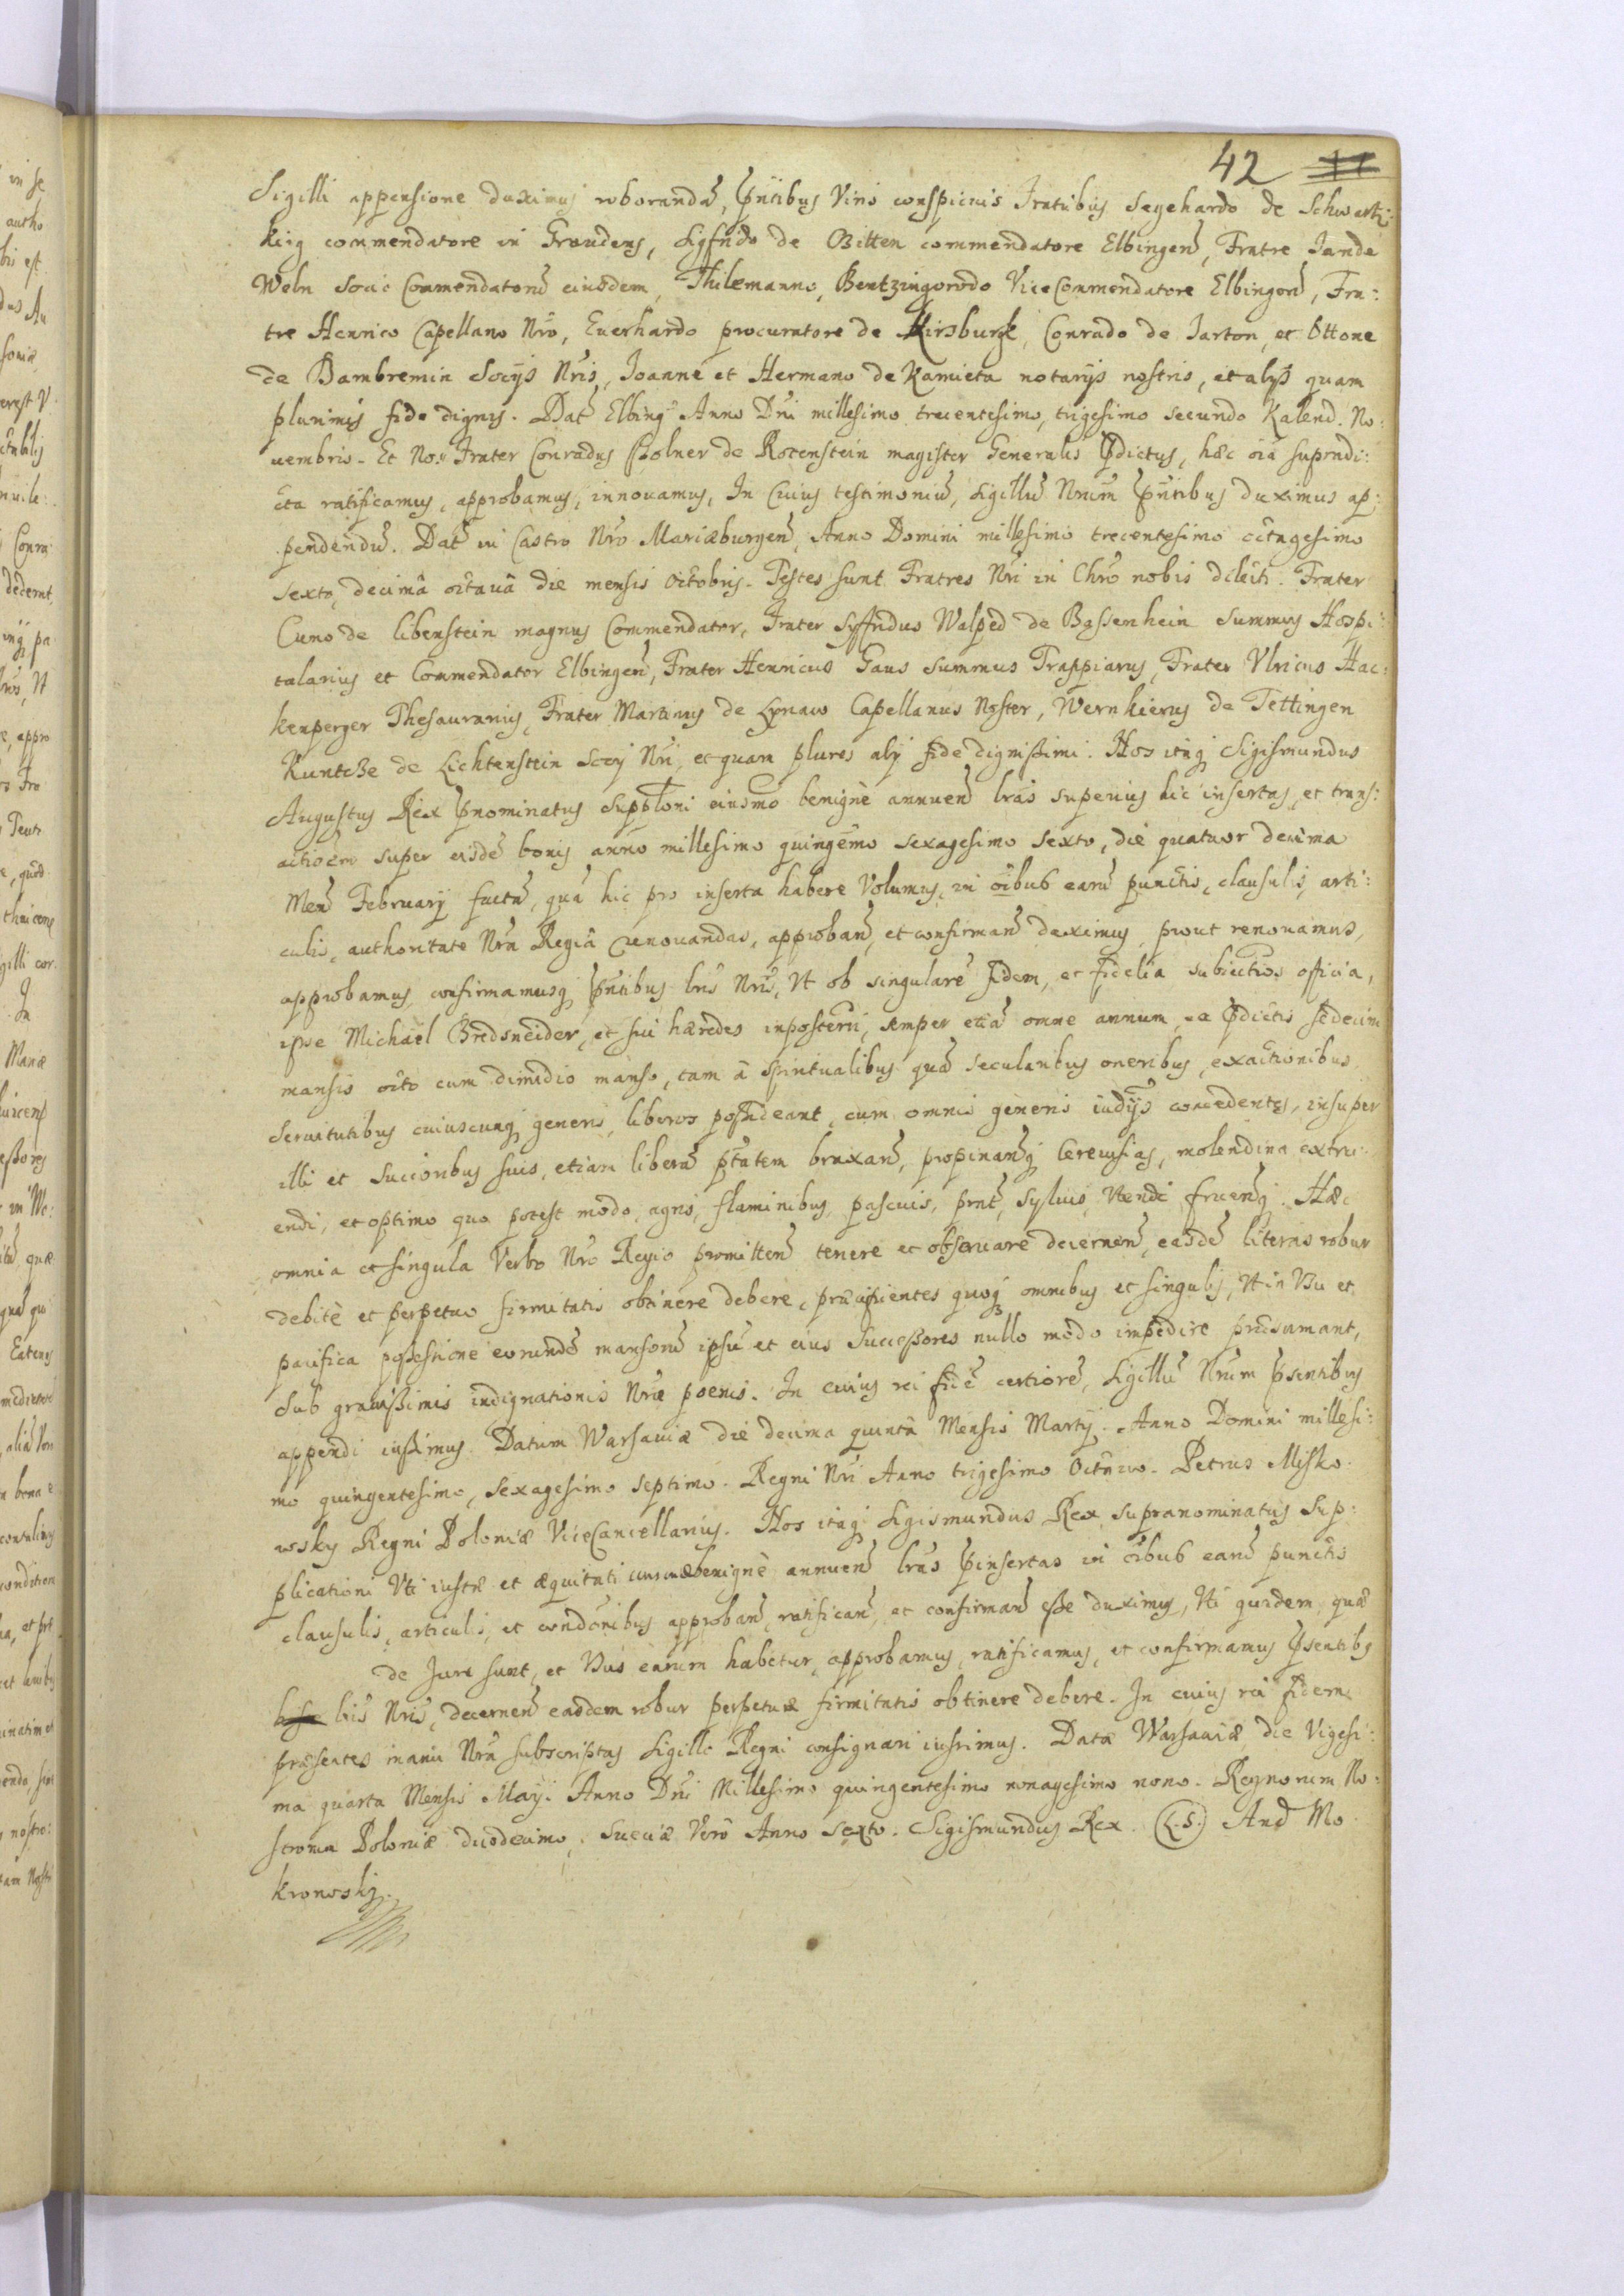 42
Sigilli appensione duximus roborandã, p̃ntibus Viris conspicuis Fratribus Segehardo de Schwartz:
kirg commendatore in Graudens, Sigfrido de Bitten commendatore Elbingen̄, Fratre Jande
Weln Socio Commendatoris eiusdem, Thilemanno, Bentzingorodo Vice Commendatore Elbingen̄, Fra:
tre Henrico Capellano Nr̃o, Euerhardo procuratore de Kirsburgk, Conrado de Jarton, et Ottone
de Bambremin Socijs Nr̃is, Joanne et Hermano de Kamieta notarijs nostris, et alijs quam
plurimis fide dignis. Dat̃ Elbing Anno Dn̄i millesimo trecentesimo, trigesimo secundo Kalend. No:
uembris. Et Nos Frater Conradus Czolner de Rotenstein magister Generalis p̃dictus, hæc oĩa supradi:
cta ratificamus, approbamus, innouamus, In Cuius testimoniũ, Sigillũ Nrũm p̃ntibus duximus ap:
pendendũ. Dat̃ in Castro Nr̃o Mariæburgen̄, Anno Domini millesimo trecentesimo octuagesimo
sexto, decimâ octauâ die mensis Octobris. Testes sunt Fratres Nr̃i in Chrõ nobis dilecti. Frater
Cuno de libenstein magnus Commendator, Frater Syffridus Walped de Bassenhein Summus Hospi:
talarius et Commendator Elbingen̄, Frater Henricus Gans Summus Trappiarus, Frater Vlricus Hac:
kenperger Thesaurarius, Frater Martinus de Lynaw Capellanus Noster, Wernhierus de Tettingen
Kuntcze de Lichtenstein Socij Nr̃i, et quam plures alij fide dignissimi. Nos itaq; Sigismundus
Augustus Rex p̃nominatus Supplõni eiusmõ benignè annuen̄ lrãs superius hic insertas, et trans:
actioem super eisdẽ bonis anno millesimo quingẽmo sexagesimo sexto, die quatuor decima
Men̄ February factã, quã hic pro inserta habere Volumus, in oĩbus earũ punctis, clausulis, arti:
culis, authoritate Nr̃a Regiâ renouandas, approban̄, et confirman̄ duximus, prout renouamus,
approbamus confirmamusq; p̃ntibus lr̃is Nr̃is, Vt ob singularẽ fidem, et fidelia subiectiõs officia,
ipse Michaël Bredsneider, et sui hæredes inposterũ, semper etiã omne annum ea p̃dictis sedecim
mansis octo cum dimidio manso, tam à spiritualibus quã secularibus oneribus, exactionibus
Seruitutibus cuiuscunq; generis, liberos possideant, cum omnis generis iudijs concedentes, insuper
illi et Succõribus suis, etiam liberã p̃tatem braxan̄, propinan̄q; Cereuisias, molendina extru:
endi, et optimo quo potest modo, agris, flaminibus, pascuis, prat̃, syluis, Vtendi fruen̄q; Hæc
omnia et singula Verbo Nr̃o Regio promitten̄ tenere et obseruare decernen̄, easdẽ literas robur
debitè et perpetuo firmitatis obtinere debere, præcipientes quoq; omnibus et singulis, Vt in Vsu et
pacifica possessione eorundẽ mansorũ ipsũ et eius Successores nullo modo impedire præsumant,
Sub grauissimis indignationis Nr̃æ poenis. In cuius rei fidẽ certiorẽ, Sigillũ Nrũm p̃sentibus
appendi iussimus. Datum Warsauiæ die decima quintâ Mensis Martij. Anno Domini millesi:
mo quingentesimo, Sexagesimo Septimo. Regni Nr̃i Anno trigesimo Octauo. Petrus Misko:
wsky Regni Poloniæ Vice Cancellarius. Nos itaq; Sigismundus Rex supranominatus Sup:
plicationi Vti iustæ et æquitati benignè annuen̄ lrãs p̃insertas in oĩbus earũ punctis
clausulis, articulis, et condõnibus approban̄, ratifican̄, et confirman̄ esse duximus, Vti quidem, quæ
de Jure sunt, et Vsus earum habetur, approbamus, ratificamus, et confirmamus p̃sentibq
lr̃is Nr̃is, decernen̄ easdem robur perpetuæ firmitatis obtinere debere. In cuius rei fidem
præsentes manu Nr̃a subscriptas Sigillo Regni consignari iussimus. Data Warsauiæ, die Vigesi:
ma quarta Mensis Mayi Anno Dn̄i Millesimo quingentesimo nonagesimo nono. Regnorum No:
strorum Poloniæ duodecimo, Sueciæ Verò Anno Sexto. Sigismundus Rex. (L.S.) And̃ Mo
kronosky.